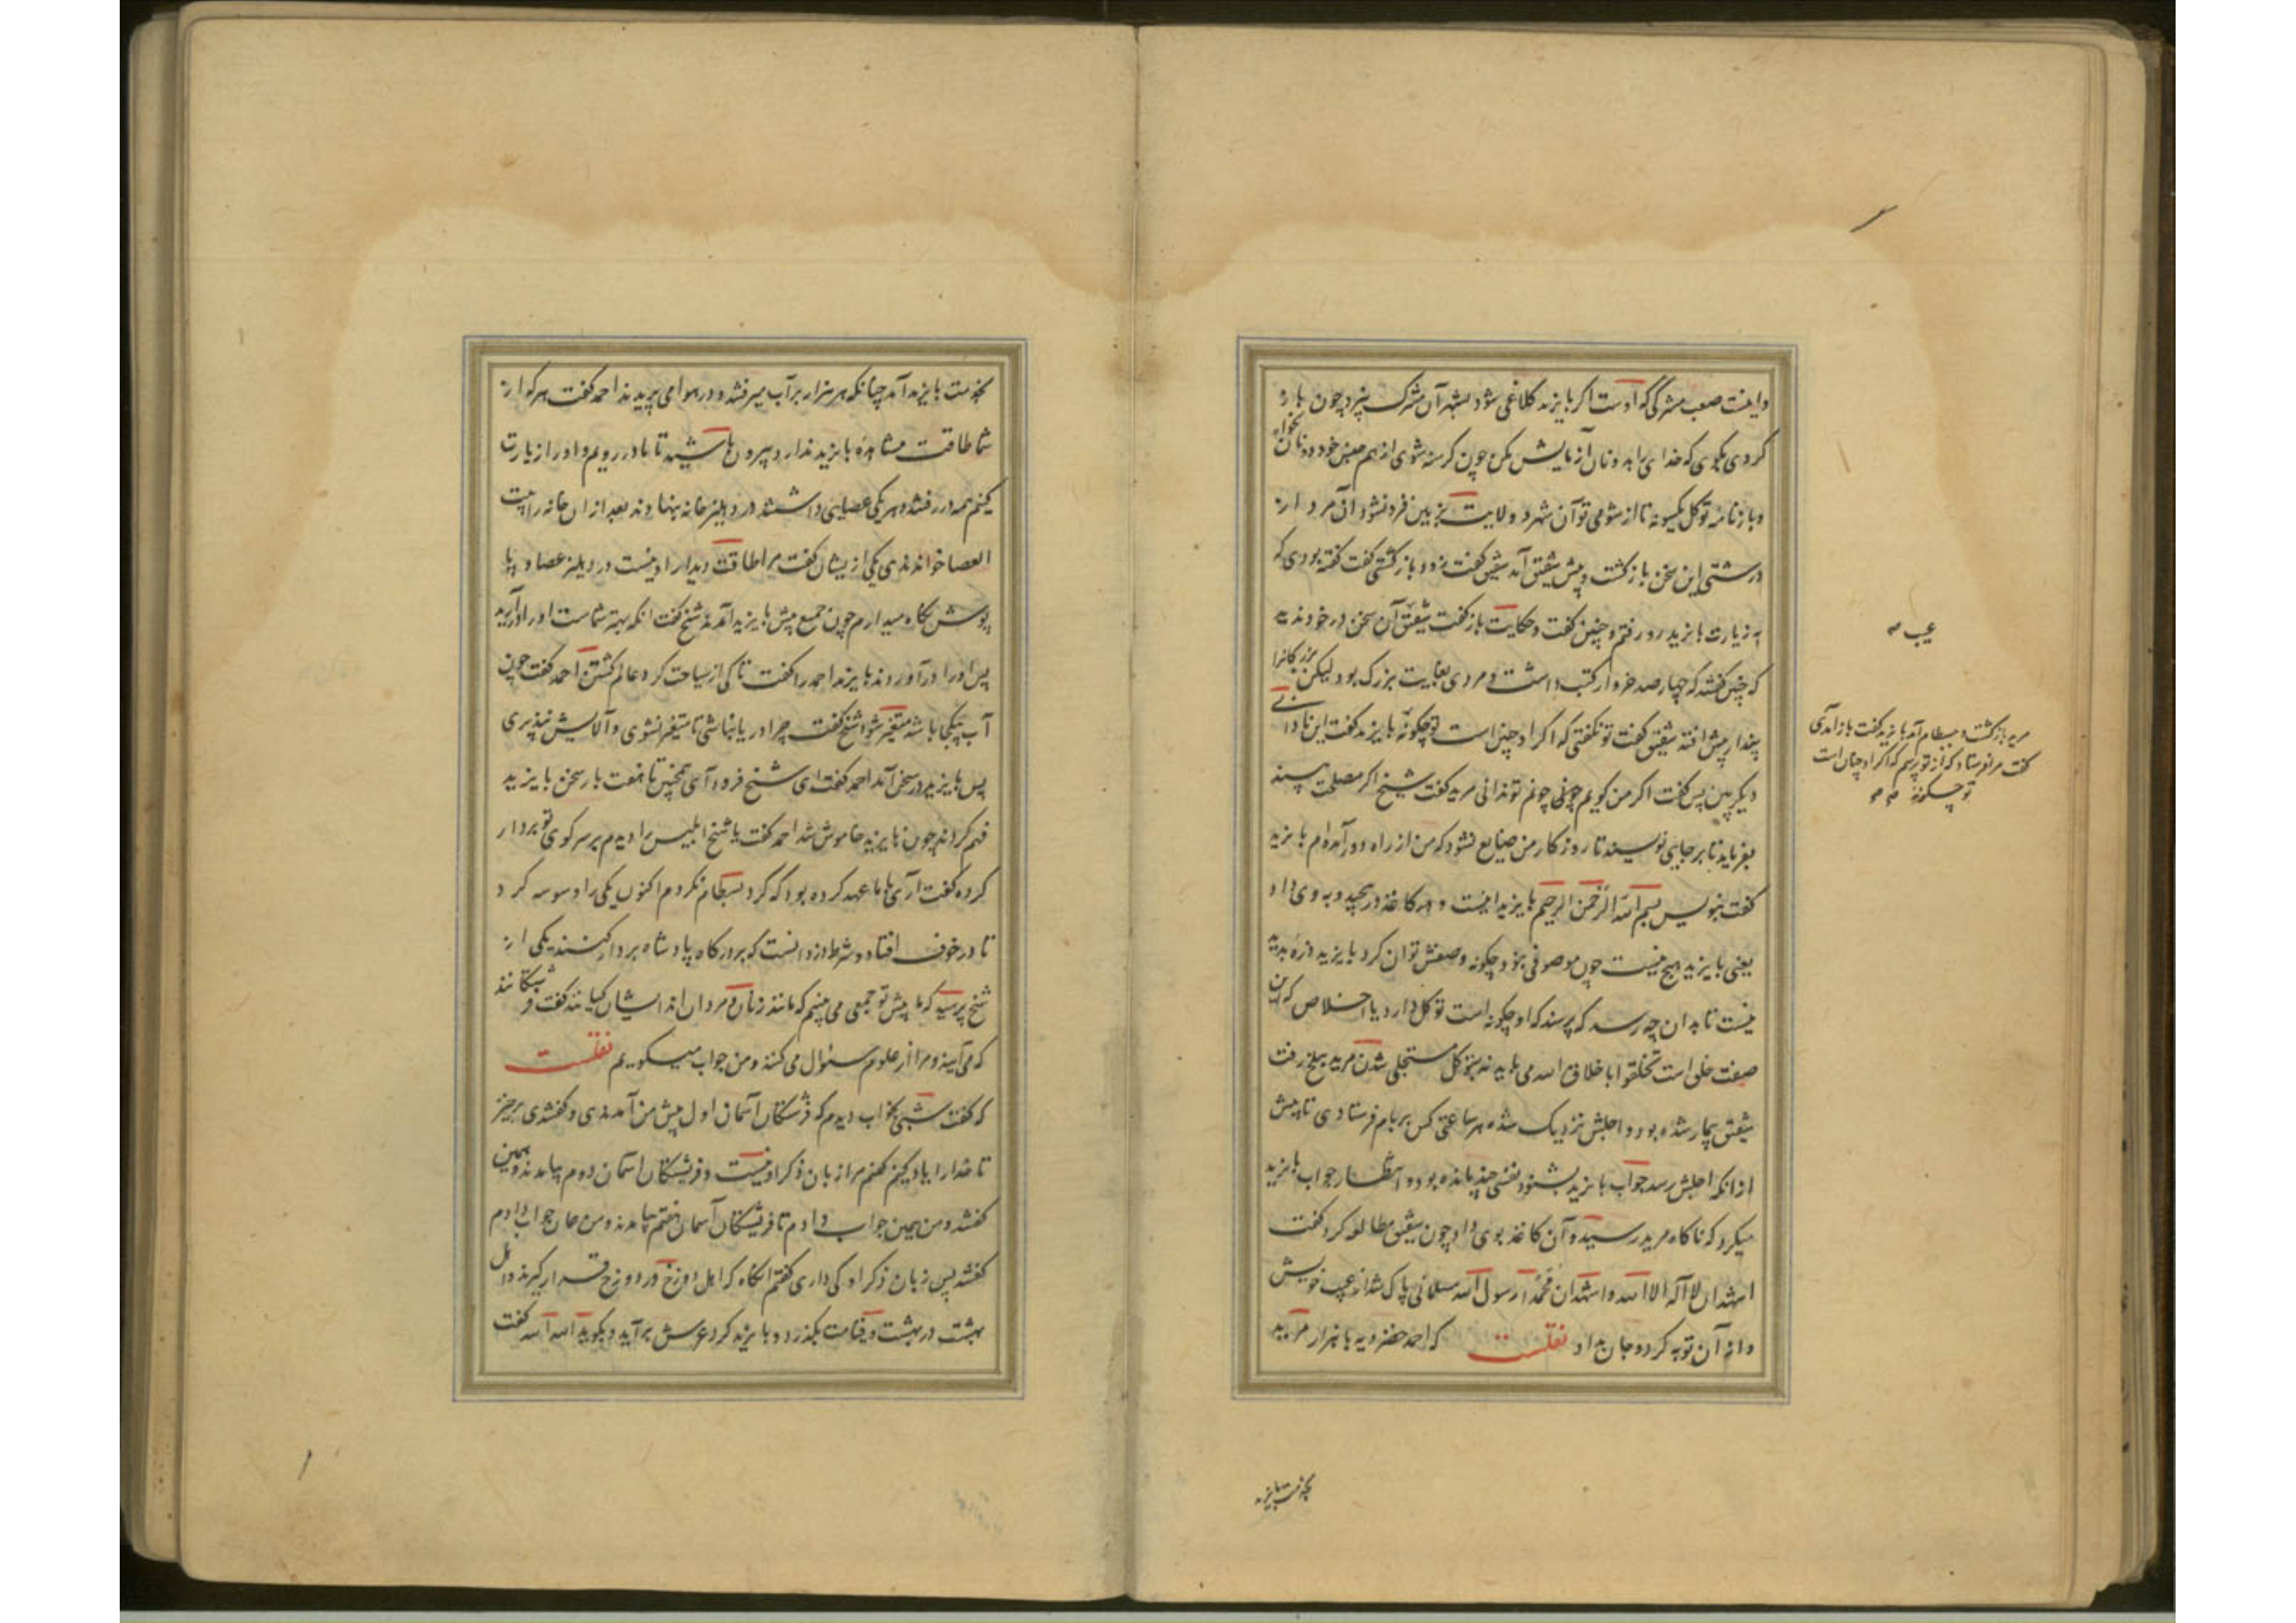 واینت صعب مشرکی که اوست اکر بایزید کلاغی شود بشهر آن مشرک نپرد چون باز
کردی بکوی که خدای را بدو نان آزمایش مکن چون کرسنه شوی از هم جنس خود دو نان بخواه
و بارنامه توکل یکسو نه تا از شومی تو آن شهر و ولایت بزمین فرو نشود آن مرد از
درشتی این سخن بازکشت و پیش شقیق آمد شقیق کفت زود بازکشتی کفت نه کفته بودی که
بزیارت بایزید رو رفتم و چنین کفت و حکایت باز کفت شقیق آن سخن در خود ندید
که چنین کفتند که چهارصد خروار کتب داشت و مردی بغایت بزرک بود لیکن بزرکانرا
پندار بیش افتد شقیق کفت تو نکفتی که اکر او چنین است تو چکونهٔ بایزید کفت این نادانی
دیکر ببین پس کفت اکر من کویم چونم تو ندانی مرید کفت شیخ اکر مصلحت بیند
بفرماید تا بر جایی نویسند تا روزکار من ضایع نشود که من از راه دور آمده‌ام بایزید
کفت بنویس بسم الله الرحمن الرحیم بایزید اینست و کاغذ در پیچید و به وی داد
یعنی بایزید هیچ نیست چون موصوفی نبود چکونه وصفش توان کرد بایزید ذره پدید
نیست تا بدان چه رسد که پرسند که او چکونه است توکل دارد یا اخلاص که این
صفت خلق است تخلقوا باخلاق الله می باید نه بتوکل متجلی شدن مرید ببلخ رفت
شقیق بیمار شده بود و اجلش نزدیک شده هر ساعتی کس بر بام فرستادی تا پیش
ازانکه اجلش رسد جواب بایزید بشنود نفسی چند مانده بود و انتظار جواب بایزید
میکرد که ناکاه مرید رسید و آن کاغذ بوی داد چون شقیق مطالعه کرد کفت
اشهد ان لا اله الا الله و اشهد ان محمدا رسول الله مسلمانی پاک شد از عیب خویش
و از آن توبه کرد و جان بداد نقلست که احمد خضرویه با هزار مرید
عیب
مرید بازکشت و ببسطام آمد بایزید کفت باز آمدی
کفت مرا فرستاد که از تو پرسم که اکر او چنان است
تو چکونهٔ
بخدمت بایزید
بخدمت بایزید آمد چنانکه هر هزار بر آب میرفتند و در هوا می پریدند احمد کفت هرکه از
شما طاقت مشاهدهٔ بایزید ندارد بیرون باشید تا ما در رویم و او را زیارت
کنیم همه در رفتند و هر یکی عصایی داشتند در دهلیز خانه بنهادند بعد ازان خانه را بیت
العصا خواندندی یکی ازیشان کفت مرا طاقت دیدار او نیست در دهلیز عصا و پا
پوش نکاه میدارم چون جمع پیش بایزید آمدند شیخ کفت انکه بهتر شماست او را درآرید
پس او را درآوردند بایزید احمد را کفت تا کی از سیاحت کرد عالم کشتن احمد کفت چون
آب بیکجا باشد متغیر شود شیخ کفت چرا دریا نباشی تا متغیر نشوی و آلایش نپذیری
پس بایزید در سخن آمد احمد کفت ای شیخ فرود آی همچنین تا هفت بار سخن بایزید
فهم کردند چون بایزید خاموش شد احمد کفت یا شیخ ابلیس را دیدم بر سر کوی تو بر دار
کرده کفت آری با ما عهد کرده بود که کرد بسطام نکردم اکنون یکی را وسوسه کرد
تا در خون افتاد و شرط دزد انست که بر درکاه پادشاه بر دار کنند یکی از
شیخ پرسید که ما پیش تو جمعی می بینیم که مانند زنان و مردان اند ایشان کیانند کفت فرشتکانند
که می آیند و مرا از علوم سئوال می کنند و من جواب میکویم نقلست
که کفت شبی بخواب دیدم که فرشتکان آسمان اول پیش من آمدندی و کفتندی برخیز
تا خدا را یاد کنیم کفتم مرا زبان ذکر او نیست و فرشتکان آسمان دوم بیامدند و همین
کفتند و من همین جواب دادم تا فرشتکان آسمان هفتم بیامدند و من همان جواب دادم
کفتند پس زبان ذکر او کی داری کفتم انکاه که اهل دوزخ در دوزخ قرار کیرند و اهل
بهشت در بهشت و قیامت بکذرد و بایزید کرد عرش برآید و بکوید الله الله کفت